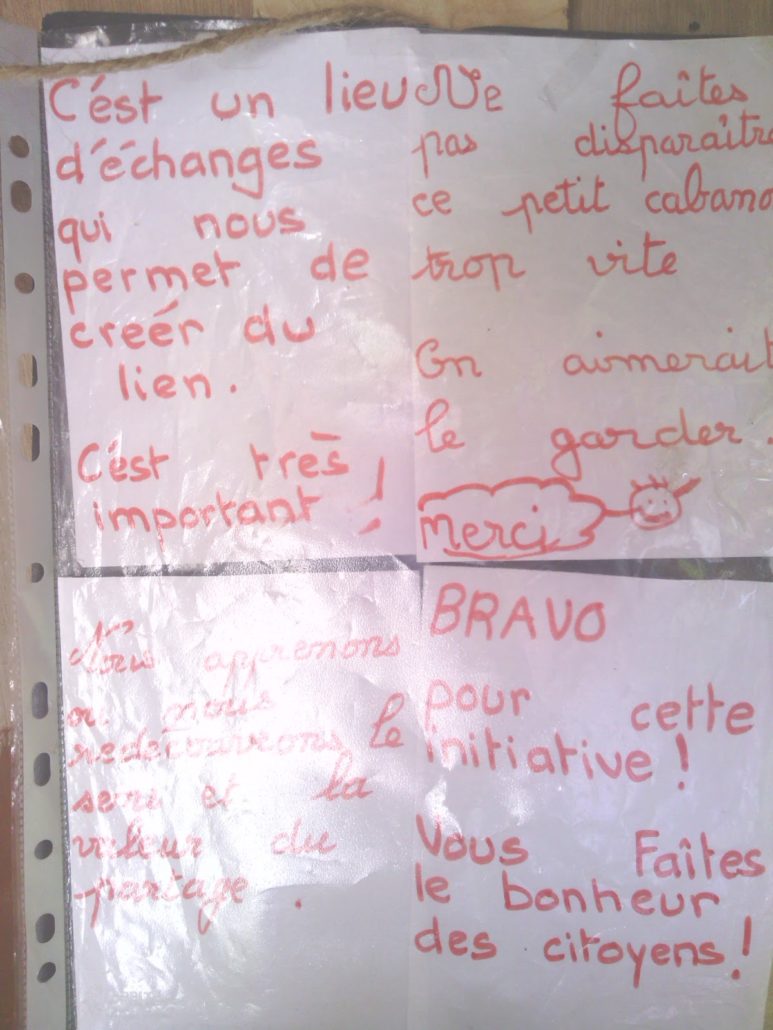 C'ést un lieu
d'échanges
qui nous
permet de
creér du
lien.
C'est très
important !
Ne faîtes
pas disparaître
ce petit cabano
trop vite
On aimerait
le garder.
Merci
Nous apprenons
ou nous
redécouvrons le
sens et la
valeur du
partage.
BRAVO
pour cette
initiative !
Vous Faîtes
le bonheur
des citoyens !